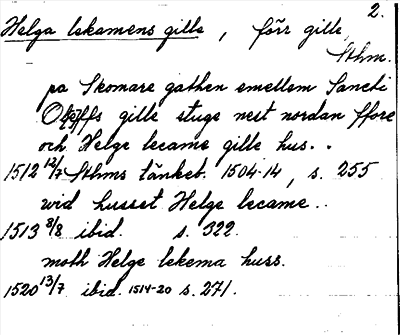 2.
Helga lekamens gille, förr gille,
Sthm.
pa Skomare gathen emellem Sancti
Oleffs gille stuge nest nordan ffore
och Helge lecame gille hus..
1512 12/7 Sthms tänkeb. 1504-14, s. 255
wid husset Helge lecame..
1513 8/8 ibid. s. 322.
moth Helge lekema huss.
1520 13/7 ibid. 1514-20 s. 271.